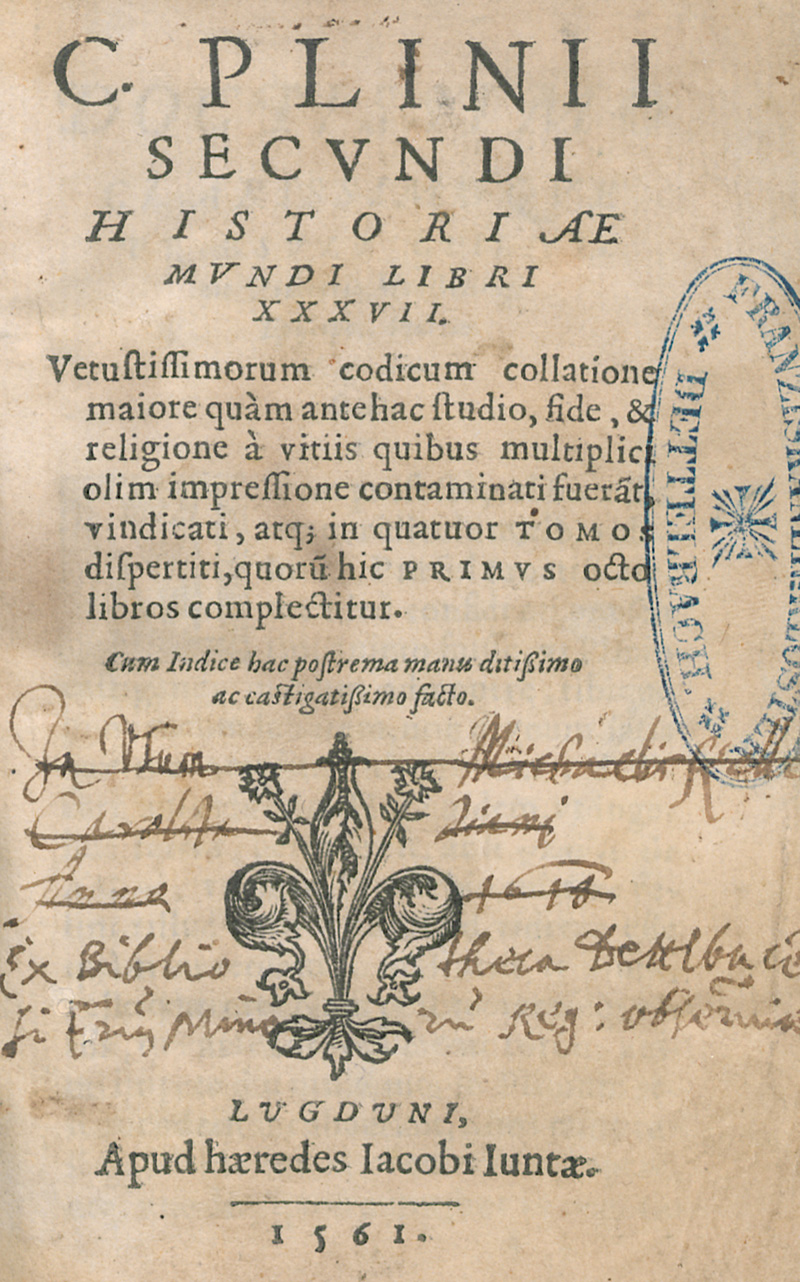 C. PLINII
SECVNDI
HISTORIÆ
MVNDI LIBRI
XXXVII.
Vetuſtiſſimorum codicum collatione
maiore quàm antehac ſtudio, fide, &
religione à vitiis quibus multiplic
olim impreſſione contaminati fuerãt,
vindicati, atq; in quatuor TOMOS
diſpertiti, quorũ hic PRIMVS octo
libros complectitur.
Cum Indice hac poſtrema manu ditißimo
ac caſtigatißimo facto.
In Vſum Michaelis
Anno 1616
Ex Biblio theca Dettlbace
ſi Min Reg: obſer
LVGDVNI,
Apud hæredes Iacobi Iuntæ.
1561.
FRANZISKANERKLOSTER
DETTELBACH.